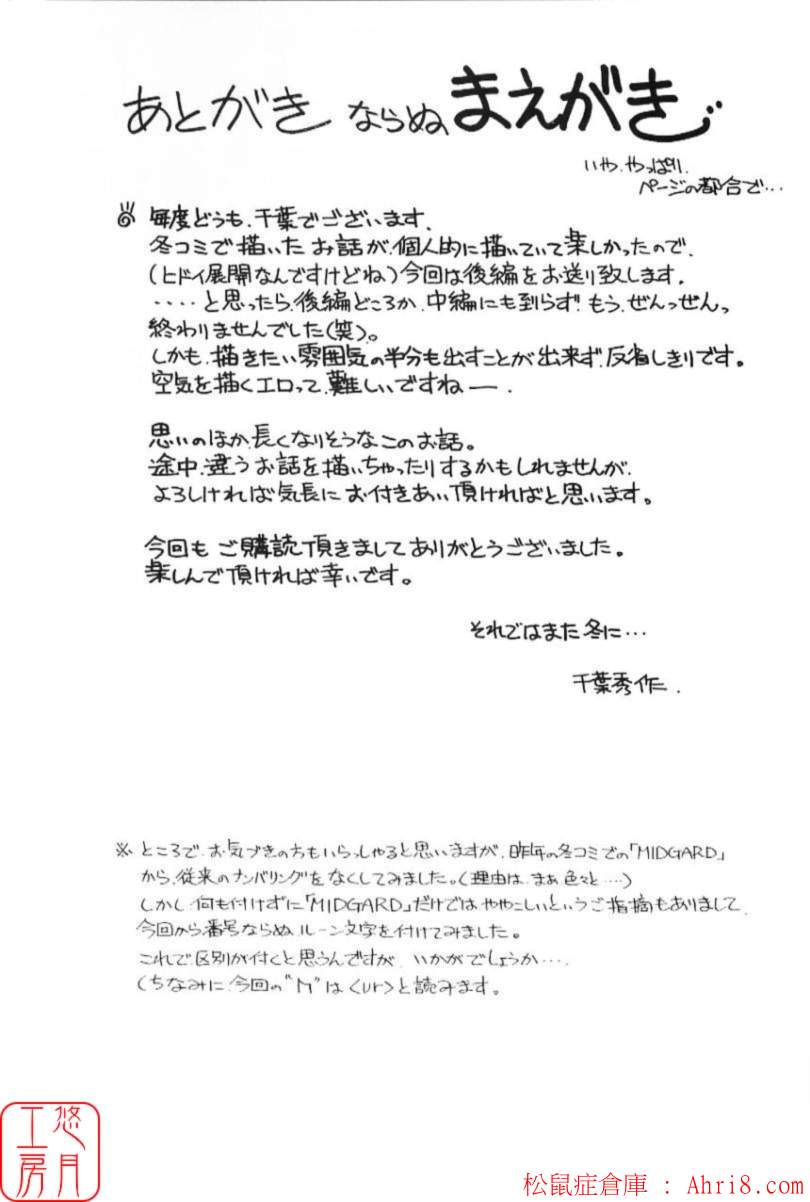 あとがき ならぬ、まえがき
いや、やっぱり、
ページの都合で…
毎度どうも、千葉でございます。
冬コミで描いた お話が、個人的に描いていて楽しかったので、
(ヒドイ展開なんですけどね)今回は後編をお送り致します。
‥‥と思ったら、後編どころか、中編にも到らず、もう、ぜんっぜんっ
終わりませんでした(笑)。
しかも、描きたい雰囲気の半分も出すことが出来ず、反省しきりです。
空気を描くエロって、難しいですねー。
思いのほか、長くなりそうなこのお話。
途中、違うお話を描いちゃったりするかもしれませんが、
よろしければ気長に お付きあい頂ければと思います。
今回も ご購読頂きまして ありがとうございました。
楽しんで頂ければ幸いです。
それではまた冬に…
千葉秀作.
※ ところで、お気づきの方もいらっしゃると思いますが、昨年の冬コミでの「MIDGARD」
から、従来のナンバリングをなくしてみました。(理由は、まぁ色々と‥‥)
しかし、何も付けずに「MIDGARD」だけでは、ややこしいというご指摘もありまして、
今回から番号ならぬ、ルーン文字を付けてみました。
これで区別が付くと思うんですが、いかがでしょうか‥‥
(ちなみに、今回の"ᚢ"は<ur>と読みます。
悠月工房
松鼠症倉庫 : Ahri8.com